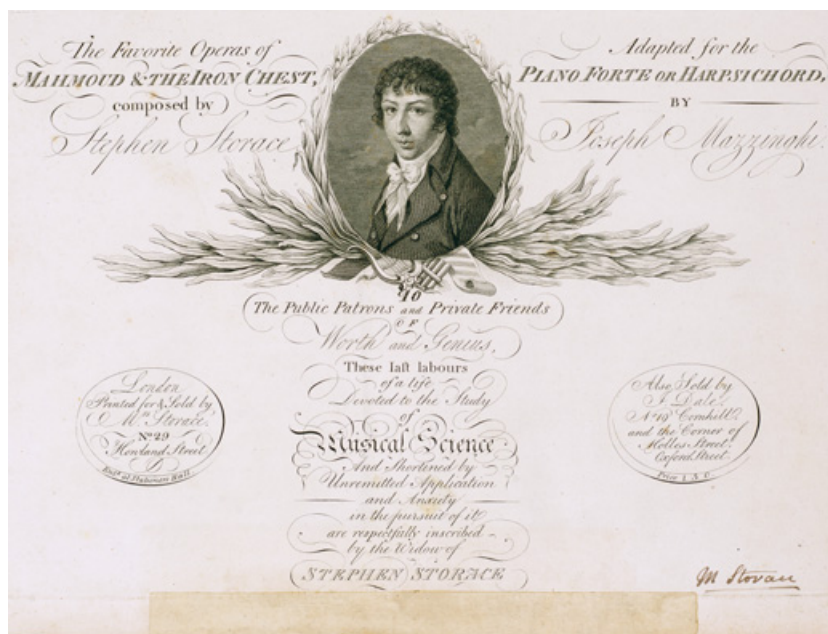 The Favorite Operas of
MAHMOUD & THE IRON CHEST,
composed by
Stephen Storace
Adapted for the
PIANO FORTE OR HARPSICHORD,
BY
Joseph Mazzinghi.
TO
The Public Patrons and Private Friends
OF
Worth and Genius,
These laſt labours
of a life
Devoted to the Study
of
Musical Science
And Shortened by
Unremitted Application
and Anxiety
in the pursuit of it
are respectfully inscribed
by the Widow of
STEPHEN STORACE
London
Printed for & Sold by
Mrs Storace,
No. 29
Howland Street
Entd. at Stationers Hall
Also Sold by
J. Dale,
No. 19 Cornhill
and the Corner of
Holles Street
Oxford Street.
Price
M Storace